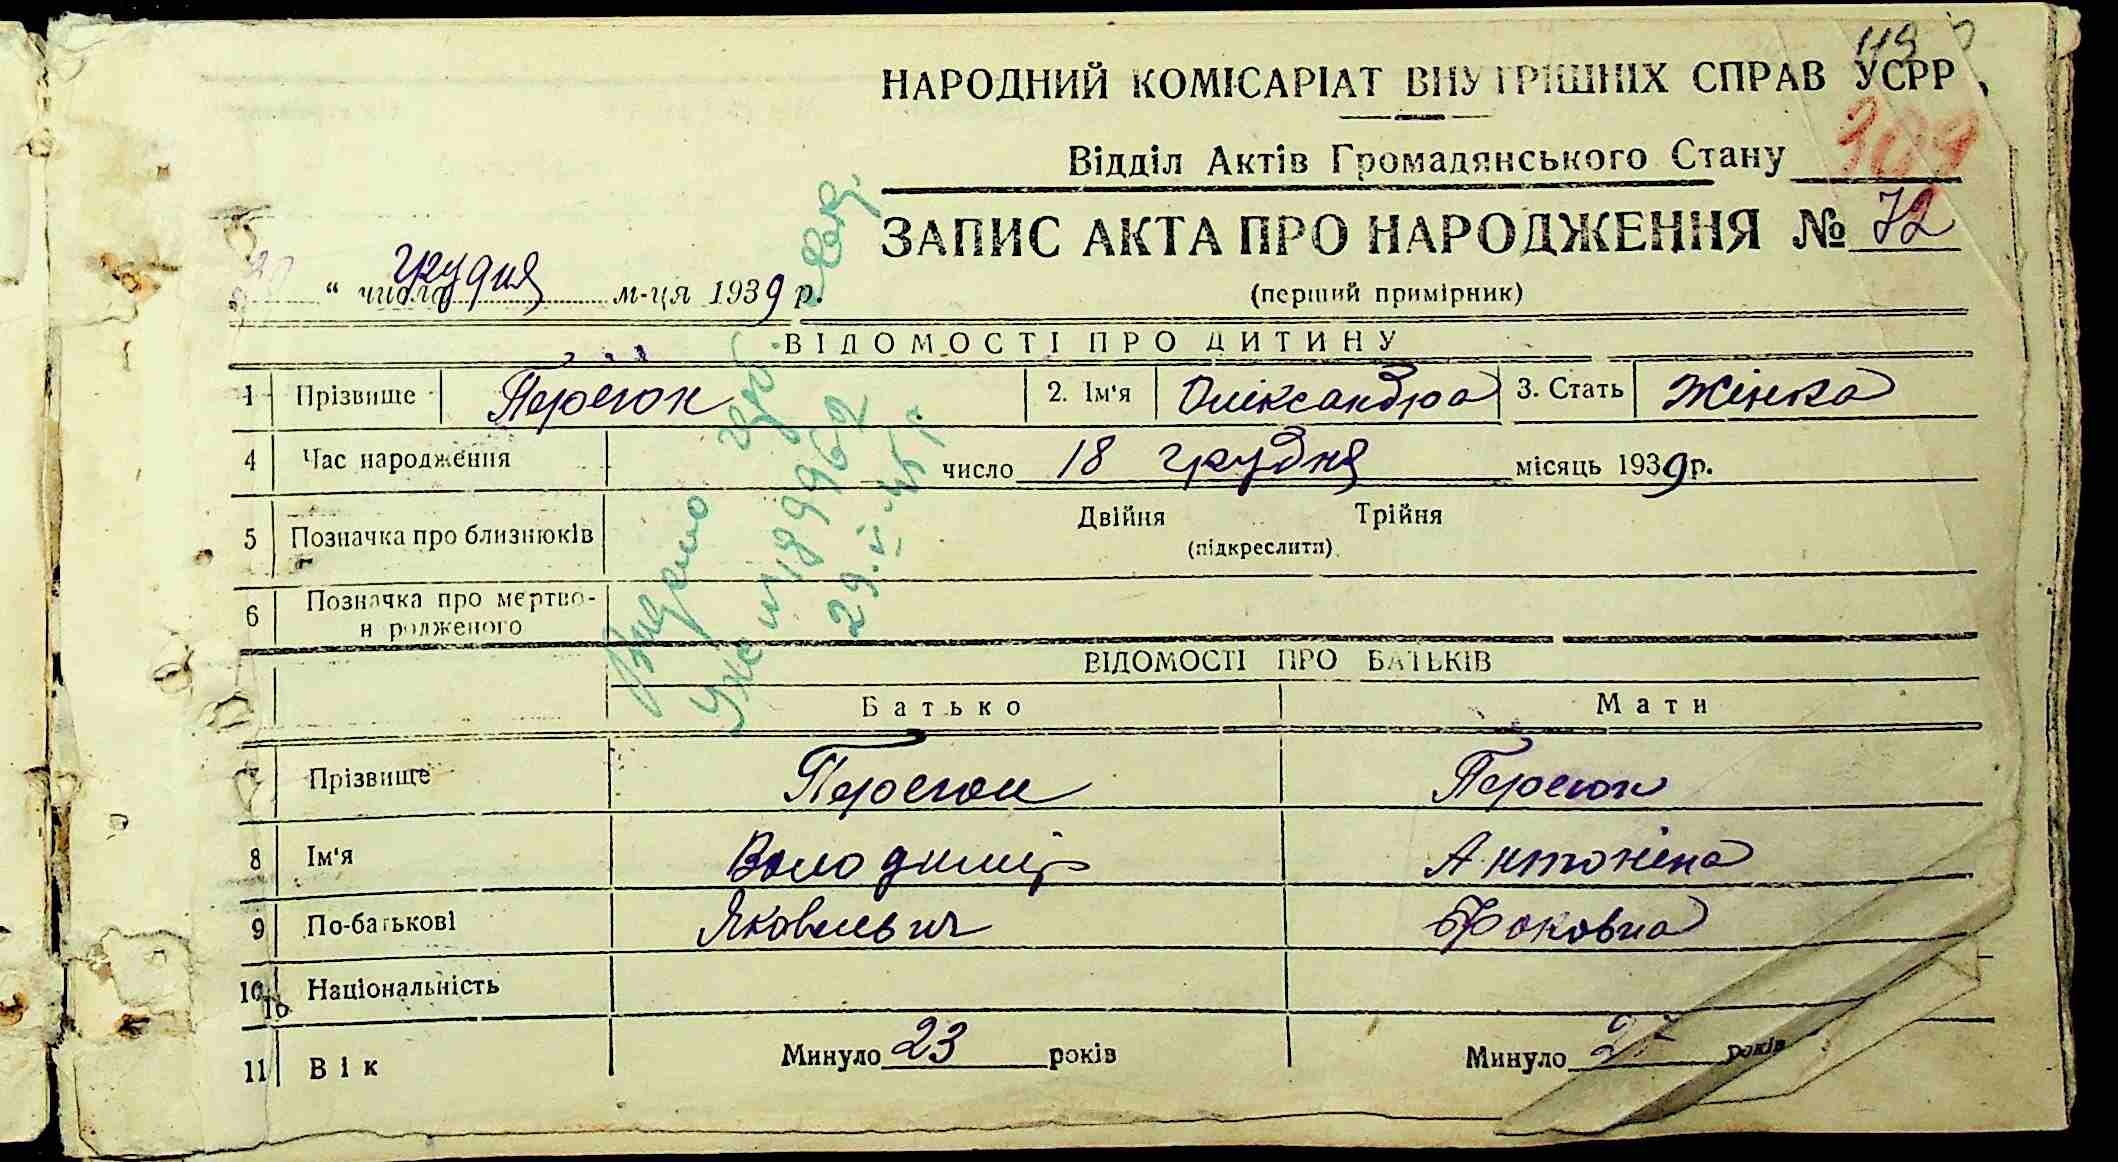 119
НАРОДНИЙ КОМІСАРІАТ ВНУТРІШНІХ СПРАВ УСРР
Відділ Актів Громадянського Стану
ЗАПИС АКТА ПРО НАРОДЖЕННЯ № 72
" число грудня м-ця 1939 р.
(перший примірник)
ВІДОМОСТІ ПРО ДИТИНУ
1 Прізвище Персион 2. Ім'я Олександра 3. Стать Жінка
4 Час народження число 18 грудня місяць 1939 р.
5 Позначка про близнюків Двійня Трійня
(підкреслити)
6 Позначка про мертвонародженого
Видано
189962
ВІДОМОСТІ ПРО БАТЬКІВ
Батько Мати
7 Прізвище Персион Персион
8 Ім'я Володимир Антоніна
9 По-батькові Якович Фоковна
10 Національність
11 Вік Минуло 23 років Минуло років